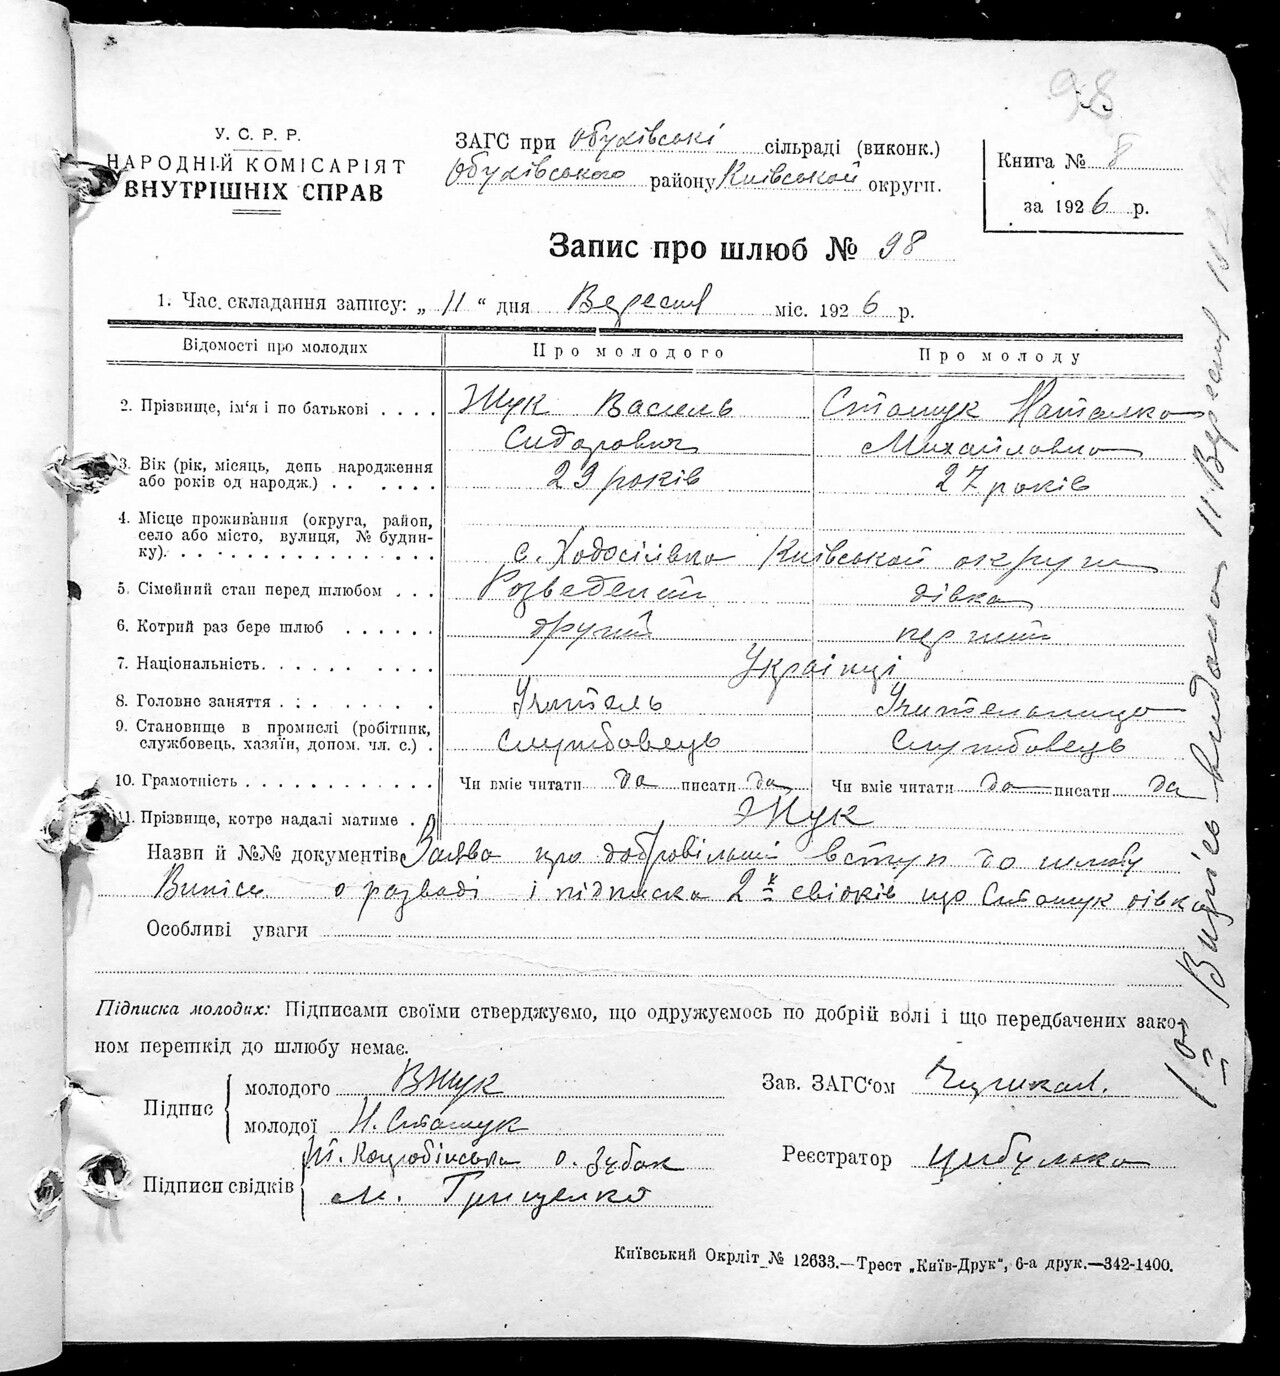 98
У. С. Р. Р.
НАРОДНІЙ КОМІСАРІЯТ
ВНУТРІШНІХ СПРАВ
ЗАГС при Обухівські сільраді (виконк.)
Обухівського району Київської округи.
Книга № 8
за 1926 р.
Запис про шлюб № 98
1. Час. складання запису: „ 11 “ дня Вересня міс. 1926 р.
Відомості про молодих Про молодого Про молоду
2. Прізвище, ім'я і по батькові . . . . Жук Василь Сташук Наталка
Сидорович Михайловна
3. Вік (рік, місяць, день народження
або років од народж.) . . . . . 29 років 27 років
4. Місце проживання (округа, район,
село або місто, вулиця, № будин-
ку). с. Ходосівка Київської округи
5. Сімейний стан перед шлюбом . . . Розведений дівка
6. Котрий раз бере шлюб . . . . . . другий перший
7. Національність. Українці
8. Головне заняття Учитель Учителниця
9. Становище в промислі (робітник,
службовець, хазяїн, допом. чл. с.) . службовець Службовець
10. Грамотність Чи вміє читати да писати да Чи вміє читати да писати да
11. Прізвище, котре надалі матиме . Жук
Назви й №№ документів Заява про добровільний вступ до шлюбу
Випис о розводі і підписка 2х свідків що Сташук дівка
Особливі уваги
Підписка молодих: Підписами своїми стверджуємо, що одружуємось по добрій волі і що передбачених зако-
ном перешкід до шлюбу немає.
Підпис
молодого ВЖук
молодої Н. Сташук
Зав. ЗАГС'ом
Підписи свідків
М. Коцюбінська О. Зубак
М. Грищенко
Реєстратор Цибулько
Київський Окрліт № 12633.—Трест „Київ-Друк“, 6-а друк.—342-1400.
Випись видано 11 Вересня 192